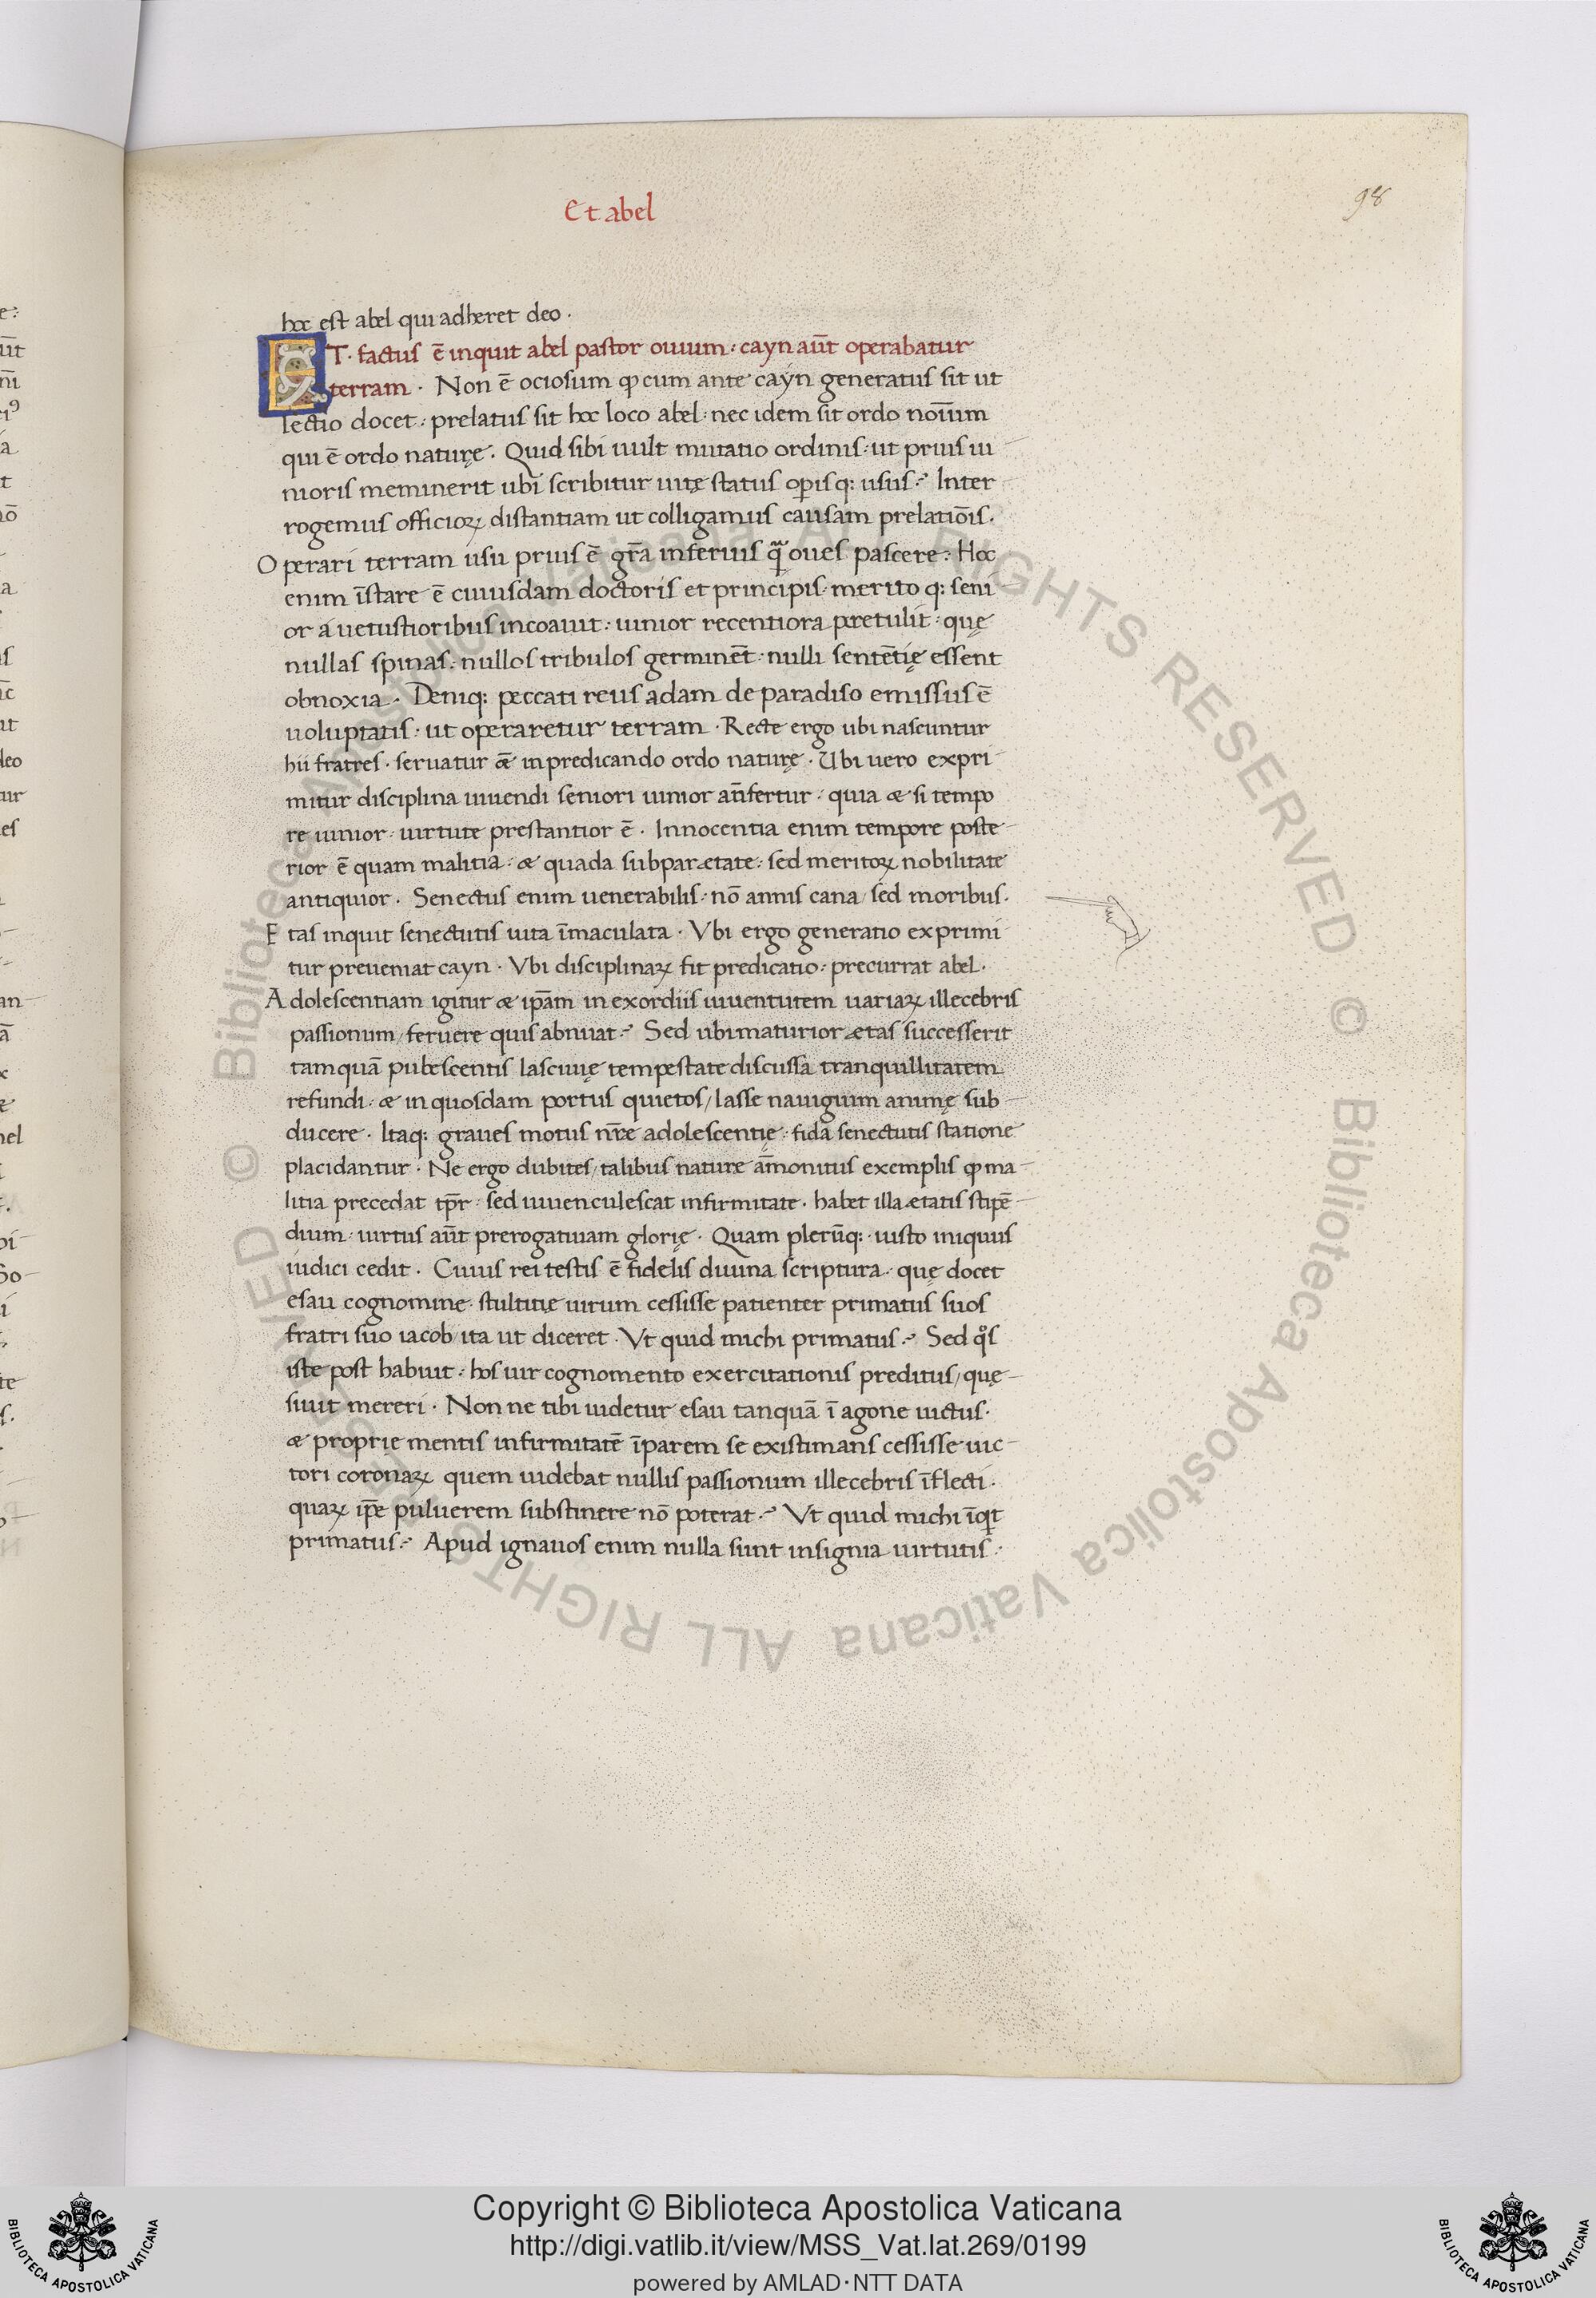 Et abel
98
hoc est abel qui adheret deo.
ET. factus ē inquit abel pastor ovium: cayn aūt operabatur
terram. Non ē ociosum ꝙ cum ante cayn generatus sit ut
lectio docet: prelatus sit hoc loco abel: nec idem sit ordo noīum
qui ē ordo naturę. Quid sibi uult mutatio ordinis: ut prius iu
nioris meminerit ubi scribitur uitę status oꝑis q: usus? Inter
rogemus officioꝝ distantiam ut colligamus causam prelatiōis.
Operari terram usu prius ē gr̄a inferius q̄ oues pascere: Hoc
enim īstare ē cuiusdam doctoris et principis merito q: seni
or a uetustioribus incoauit: iunior recentiora pretulit: quę
nullas spinas: nullos tribulos germinēt: nulli sentētię essent
obnoxia. Deniq: peccati reus adam de paradiso emissus ē
uoluptatis: ut operaretur terram. Recte ergo ubi nascuntur
hii fratres. seruatur ǣ in predicando ordo naturę. Ubi uero expri
mitur disciplina uiuendi seniori iunior an̄fertur: quia æ si tempo
re iunior uirtute prestantior ē. Innocentia enim tempore poste
rior ē quam malitia: æ quada subpar ætate: sed meritoꝝ nobilitate
antiquior. Senectus enim uenerabilis: nō annis cana / sed moribus.
Etas inquit senectutis uita īmaculata. Vbi ergo generatio exprimi
tur preueniat cayn. Vbi disciplinaꝝ fit predicatio: precurrat abel.
Adolescentiam igitur æ ip̄am in exordiis iuuentutem uariaꝝ illecebris
passionum / feruere quis abnuat? Sed ubi maturior ætas successerit
tamquā pubescentis lasciuię tempestate discussa tranquillitatem
refundi: æ in quosdam portus quietos / lasse nauigium animę sub
ducere. Itaq: graues motus nr̄e adolescentię: fida senectutis statione
placidantur. Ne ergo dubites / talibus nature ām̄onitus exemplis ꝙ ma
litia precedat tp̄r: sed iuuenculescat infirmitate. habet illa ætatis stipē
dium: uirtus aūt prerogatiuam glorię. Quam plerūq: iusto iniquus
iudici cedit. Cuius rei testis ē fidelis diuina scriptura: quę docet
esau cognomine stultitię uirum cessisse patienter primatus suos
fratri suo iacob / ita ut diceret. Vt quid michi primatus? Sed qͦs
iste post habuit: hos uir cognomento exercitationis preditus / quę
siuit mereri. Non ne tibi uidetur esau tanquā ī agone uictus.
æ proprie mentis infirmitatē īparem se existimans cessisse uic
tori coronaꝝ quem uidebat nullis passionum illecebris īflecti.
quaꝝ ip̄e puluerem substinere nō poterat? Vt quid michi īqͥt
primatus? Apud ignauos enim nulla sunt insignia uirtutis:
Copyright © Biblioteca Apostolica Vaticana
http://digi.vatlib.it/view/MSS_Vat.lat.269/0199
powered by AMLAD·NTT DATA
BIBLIOTECA APOSTOLICA VATICANA
BIBLIOTECA APOSTOLICA VATICANA
© Biblioteca Apostolica Vaticana ALL RIGHTS RESERVED © Biblioteca Apostolica Vaticana ALL RIGHTS RESERVED